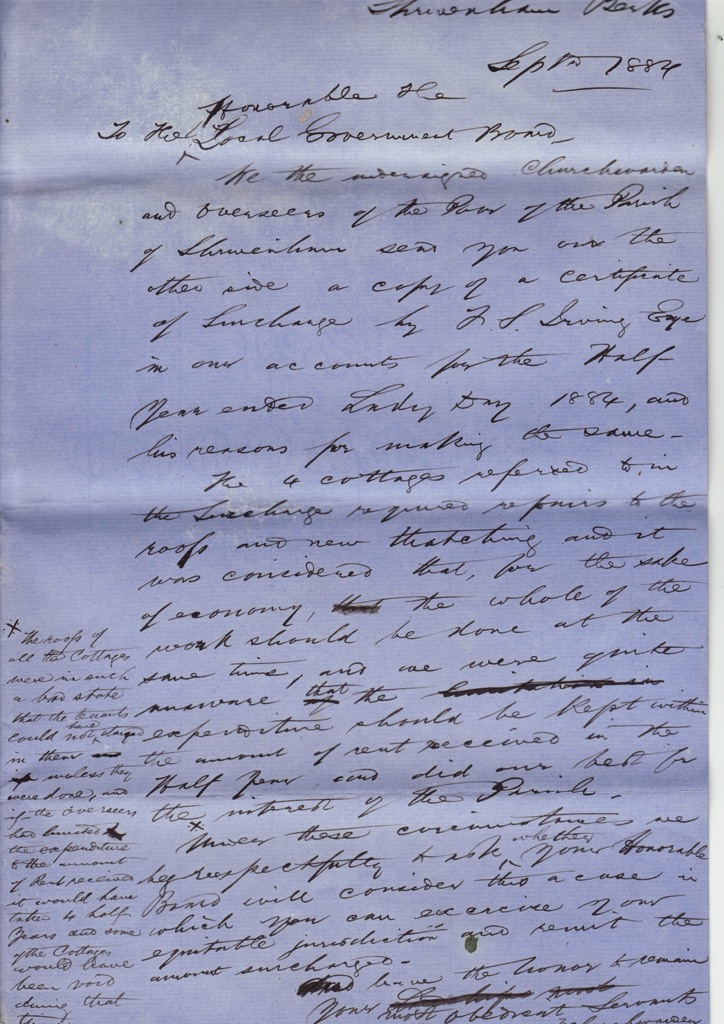 Shrivenham Berks
Septr 1884
Honorable the
To the Local Government Board
We the undersigned Churchwarden
and Overseers of the Poor of the Parish
of Shrivenham send you over the
other side a copy of a certificate
of Surcharge by Irving Esqe
in our accounts for the Half-
Year ended Lady Day 1884, and
his reasons for making the same -
The 4 cottages referred to in
the Surcharge required repairs to the
roofs and new thatching and it
was considered that, for the sake
of economy, that the whole of the
work should be done at the
same time, and we were quite
unaware that the
expenditure should be kept within
the amount of rent received in the
Half Year and did our best for
the interest of the Parish -
* Under these circumstances we
beg respectfully to ask whether your Honorable
Board will consider this a case in
which you can exercise your
equitable jurisdiction and remit the
amount surcharged -
have the honor to remain
Your
most obedient Servants
* The roofs of
all the Cottages
were in such
a bad state
that the tenants
could not have stayed
in them
unless they
were done, and
if the Overseers
had limited
the expenditure
to the amount
of Rent received
it would have
taken 4 half
Years and some
of the Cottages
would have
been void
during that